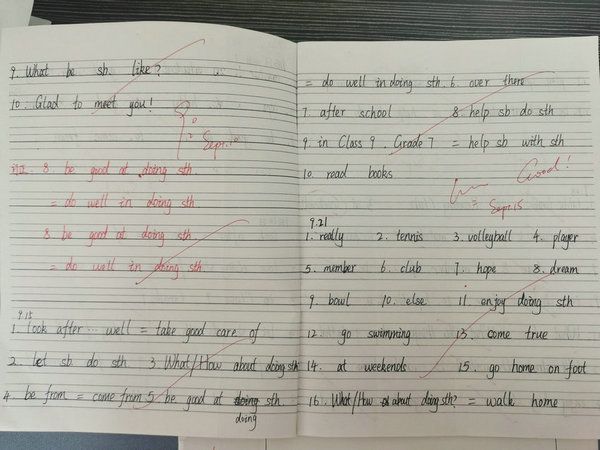 9. What be sb. like?
10. Glad to meet you!
Sept. 10
订正. 8. be good at doing sth.
= do well in doing sth.
8. be good at doing sth.
= do well in doing sth.
9.15
1. look after … well = take good care of
2. let sb do sth 3 What/How about doing sth
4. be from = come from 5 be good at doing sth
doing
= do well in doing sth. 6. over there
7. after school 8. help sb do sth
9. in Class 9, Grade 7 = help sb with sth
10. read books
Good!
Sept. 15
9.21
1. really 2. tennis 3. volleyball 4. player
5. member 6. club 7. hope 8. dream
9. bowl 10. else 11. enjoy doing sth
12. go swimming 13. come true
14. at weekends 15. go home on foot
16. What/How about doing sth? = walk home